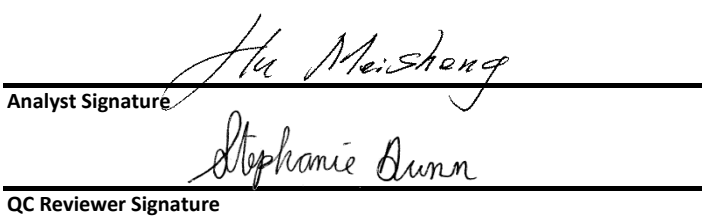 Hu Meisheng
Analyst Signature
Stephanie Dunn
QC Reviewer Signature